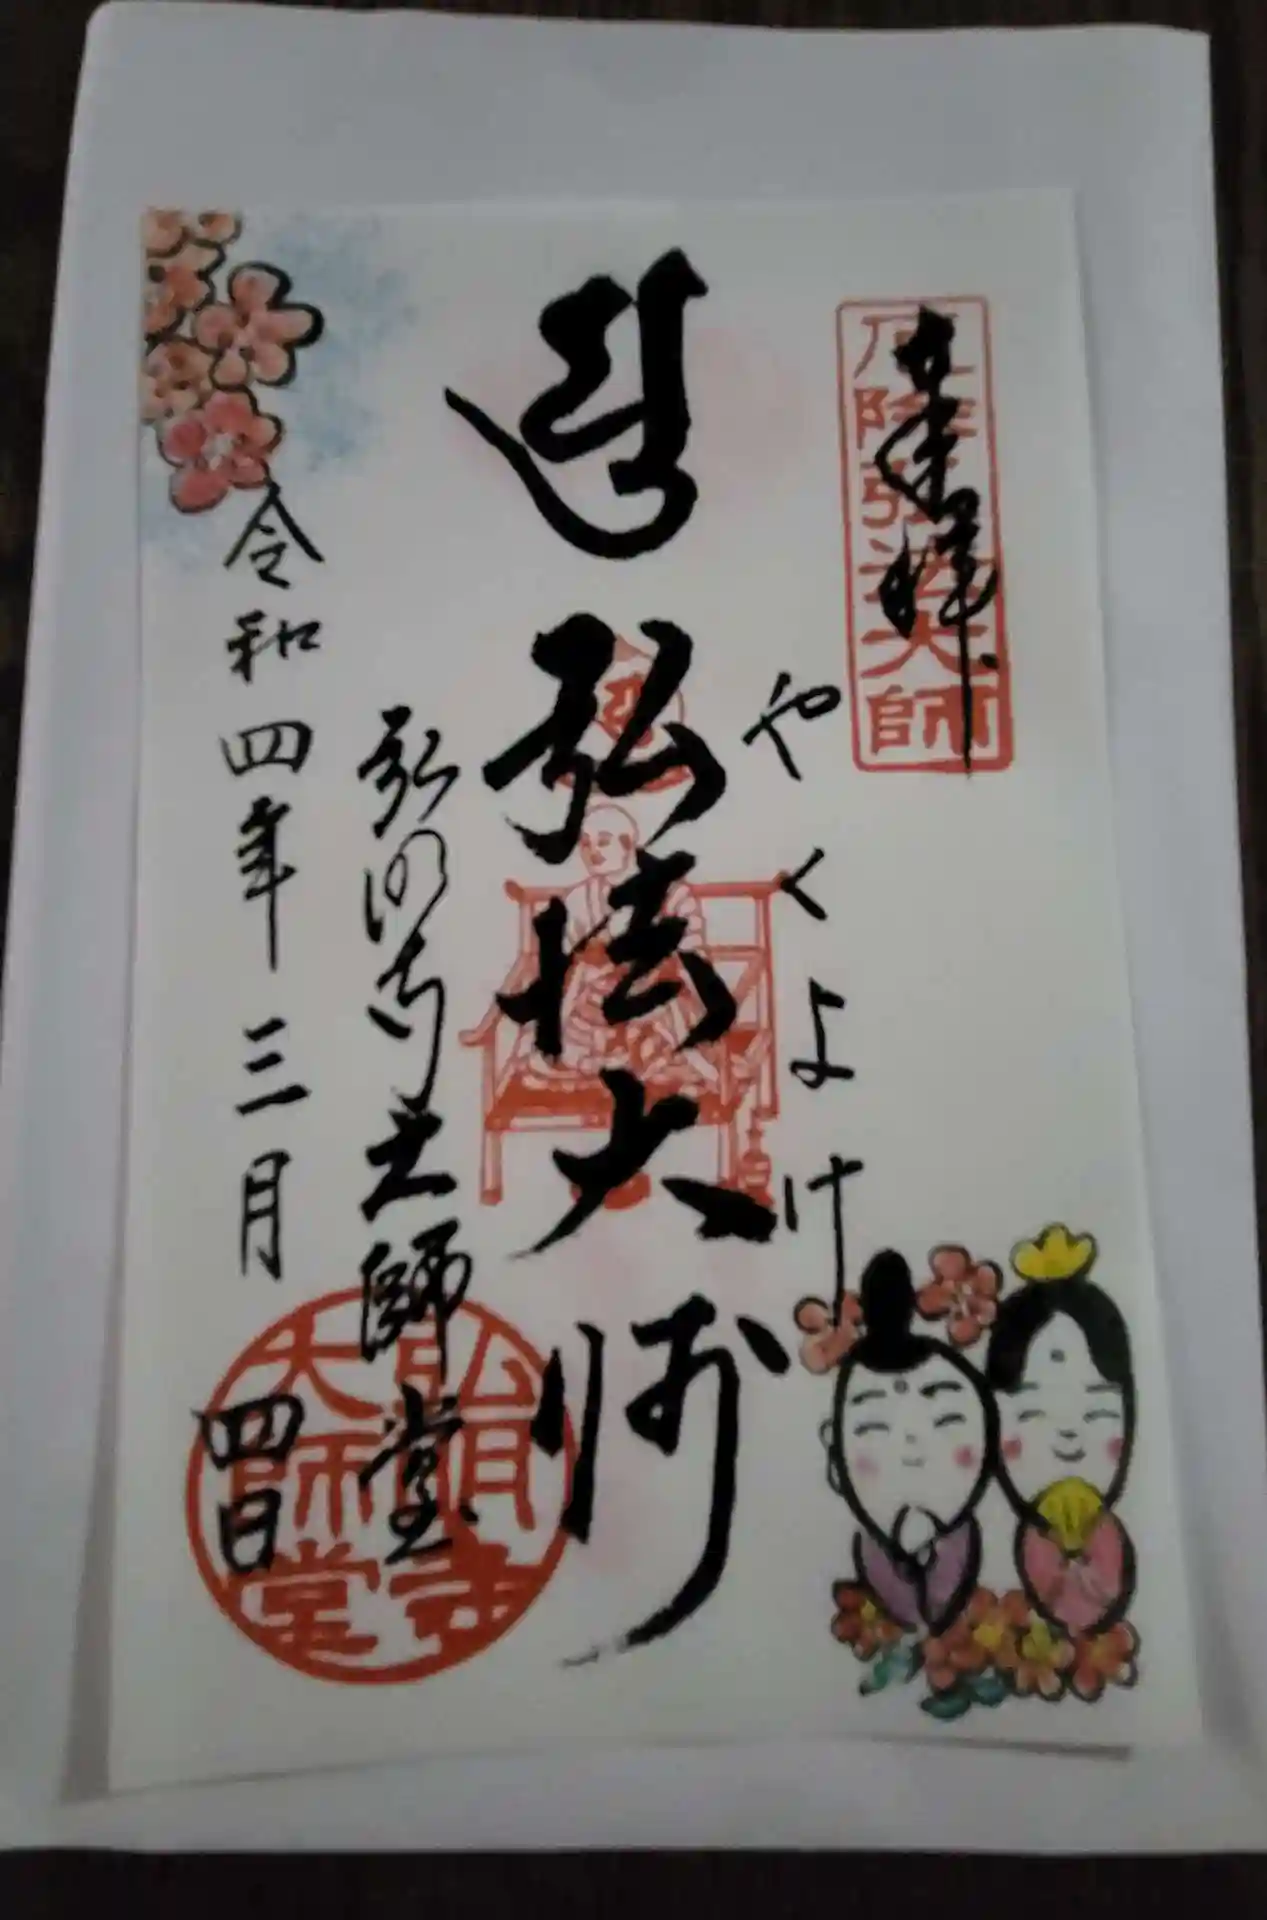 奉拝
厄除弘法大師
やくよけ
弘法大師
弘明寺大師堂
弘明寺
大師堂
令和四年三月四日